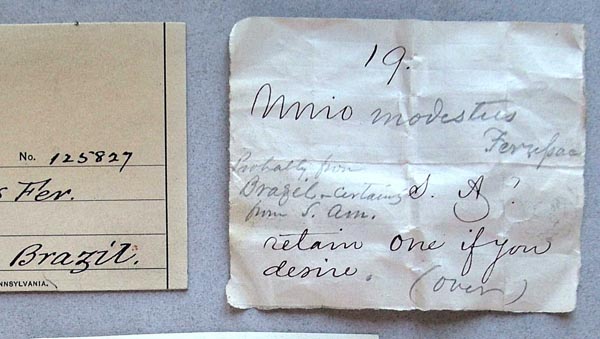 No. 125827
s Fer.
Brazil.
NNSYLVANIA.
19.
Unio modestus
Probably from
Brazil - certainly S. A?
from S. Am.
retain one if you
desire. (over)